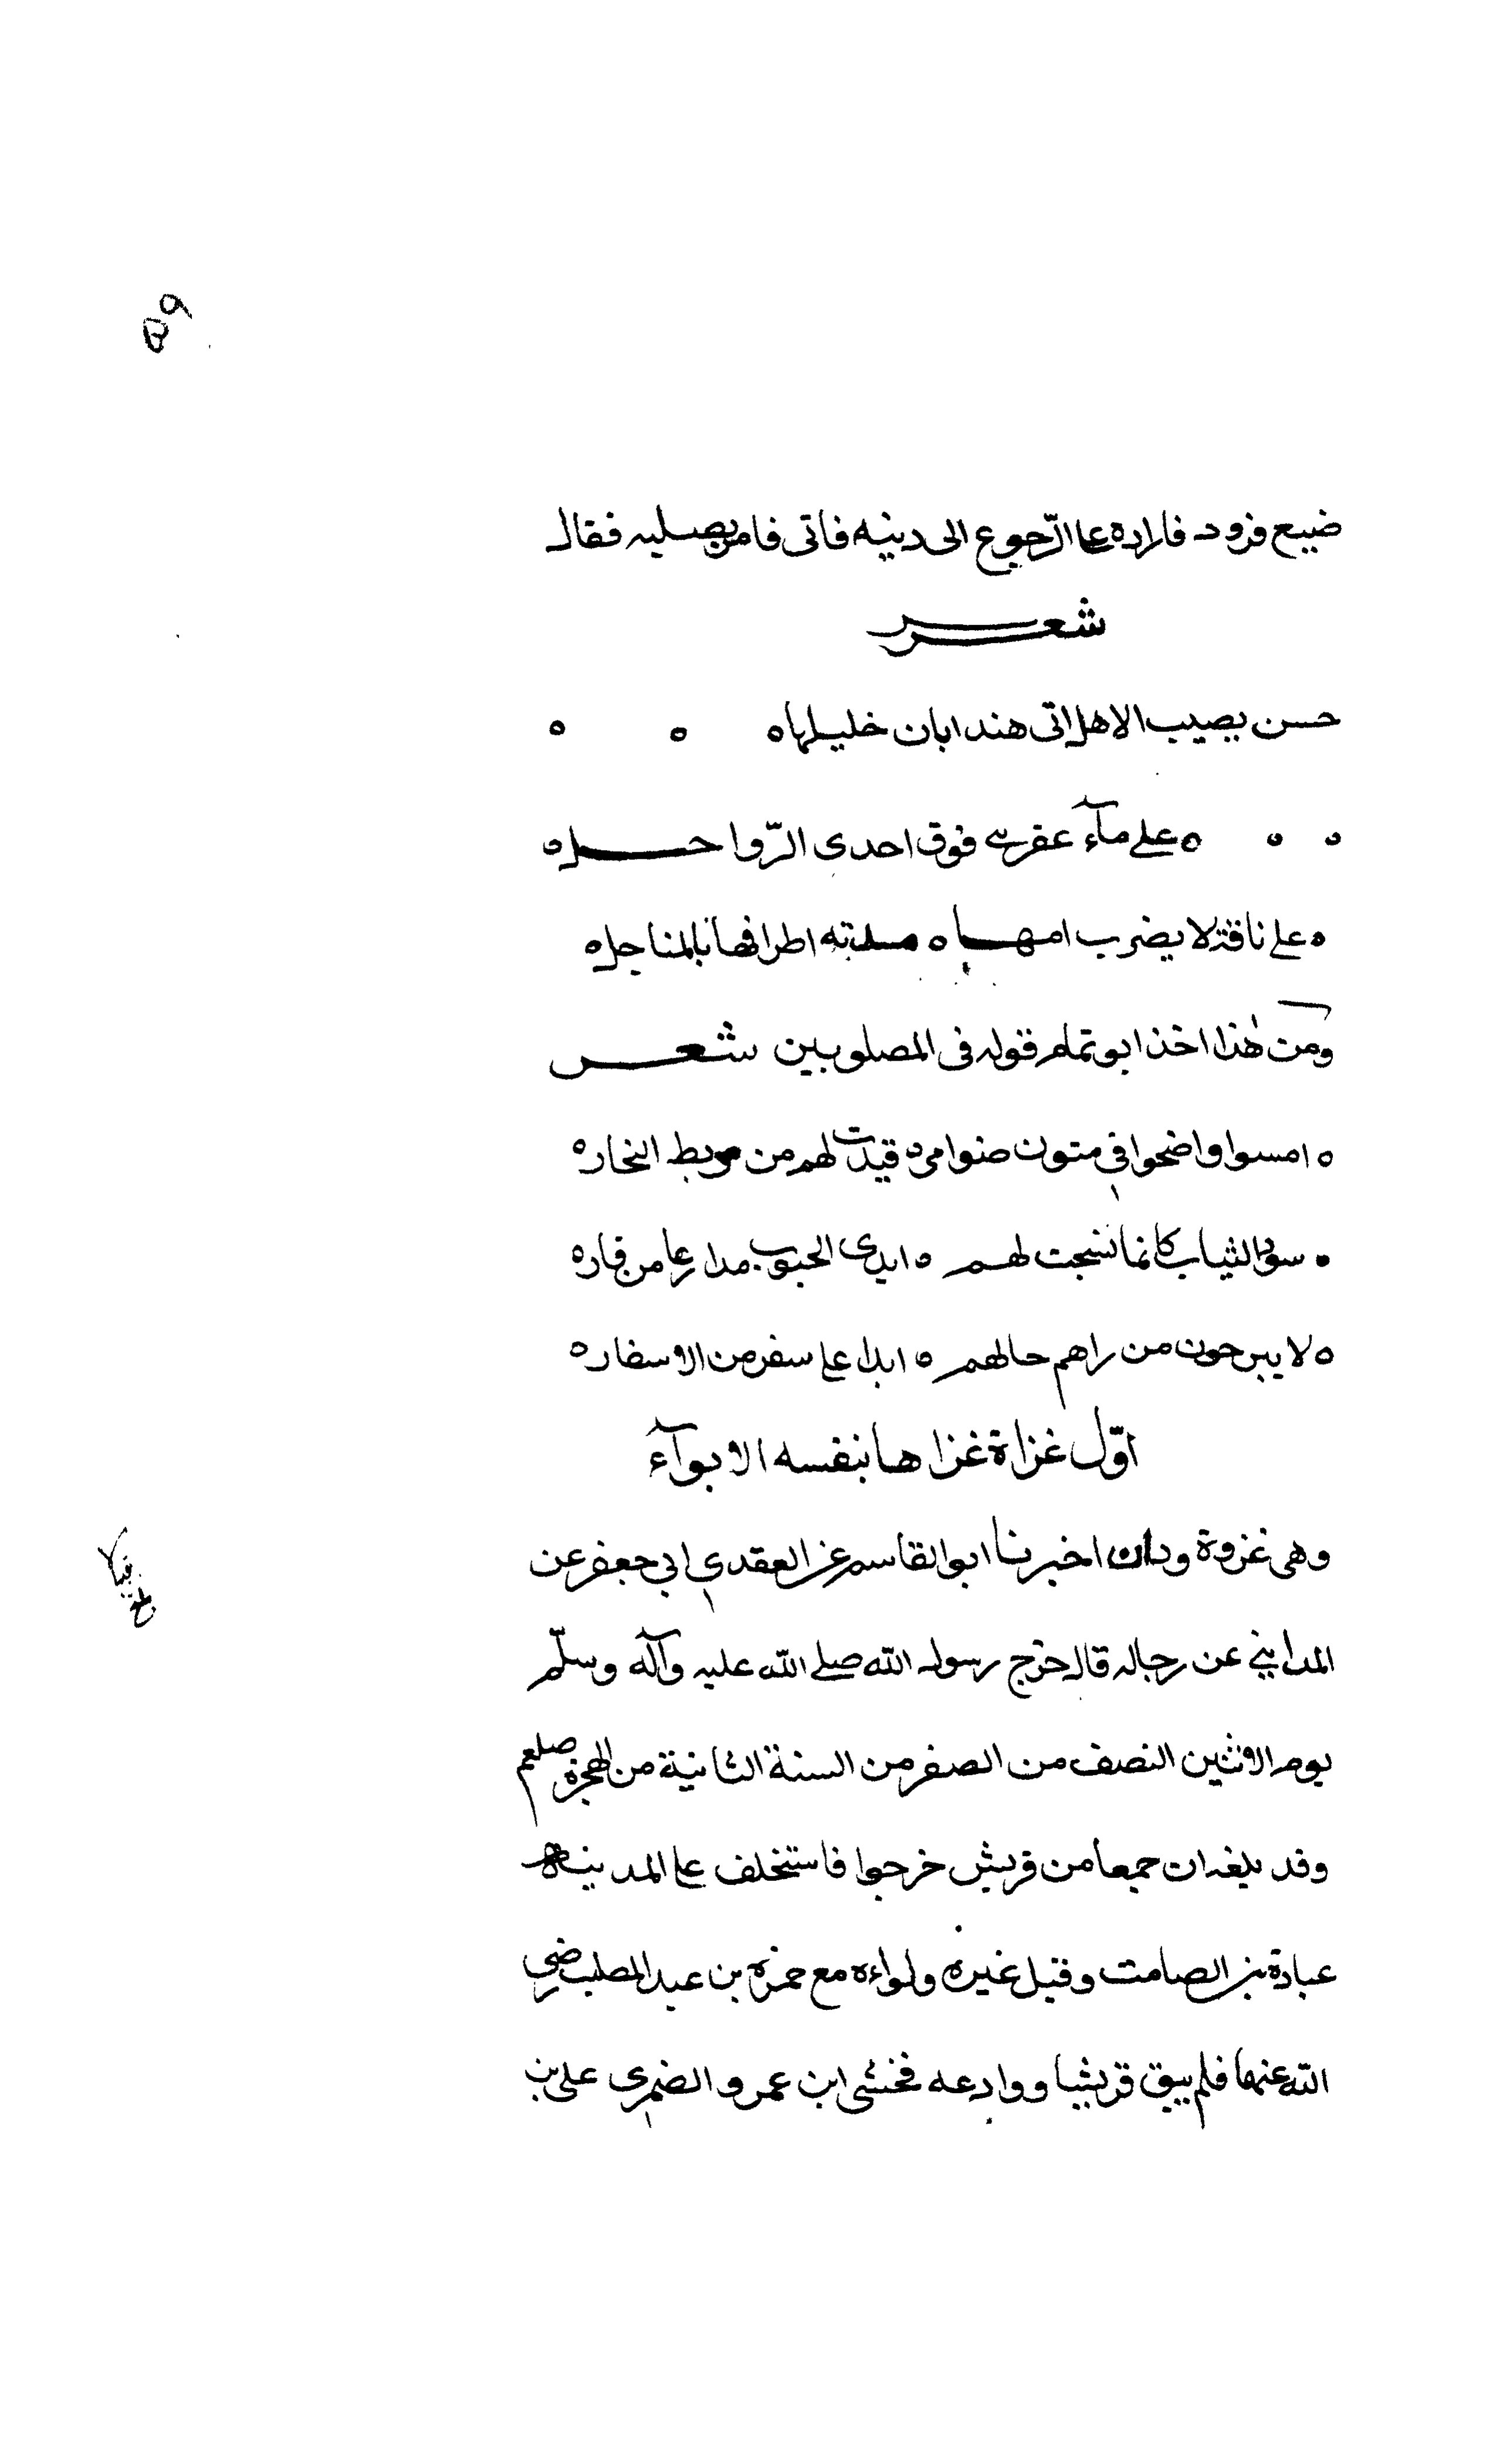 ٥٩
ضيع فزود فاراده على الرّجوع الى دينه فاتى فامر بصلبه فقال
شعر
حسن بصيب الاهل اتى هندا بان خليلها ه ه ه
ه ه ه على مآء عفرى فوق احدى الرّواحل ه
ه على ناقة لا يضرب امها ه مسدته اطرافها بالمناجل ه
ومن هٰذا اخذ ابو تمام قوله فى المصلوبين شعر
ه امسوا واضحوا في متون ضوامر ه قيدت لهم من مربط النجار ه
ه سود الثياب كانما نسجت لهم ه ايدى الجنوب مدارعا من قار ه
ه لا يبرحون من راهم حالهم ه ابدا على سفر من الاسفار ه
اوّل غزاة غزاها بنفسه الابوآء
وهى غزوة ودان اخبرنا ابو القاسم عن العقدي ابي جعفر عن
المدايني عن رجاله قال خرج رسول الله صلى الله عليه وآله وسلّم
يوم الاثنين النصف من الصفر من السنة الثانية من الهجرة صلعم
وقد بلغه ان جمعا من قريش خرجوا فاستخلف على المدينة
عبادة بن الصامت وقيل غيره ولواءه مع حمزه بن عبد المطلب رضي
الله عنهما فلم يبق قريشا ووادعه فخشى ابن عمرو الضمرى على بن